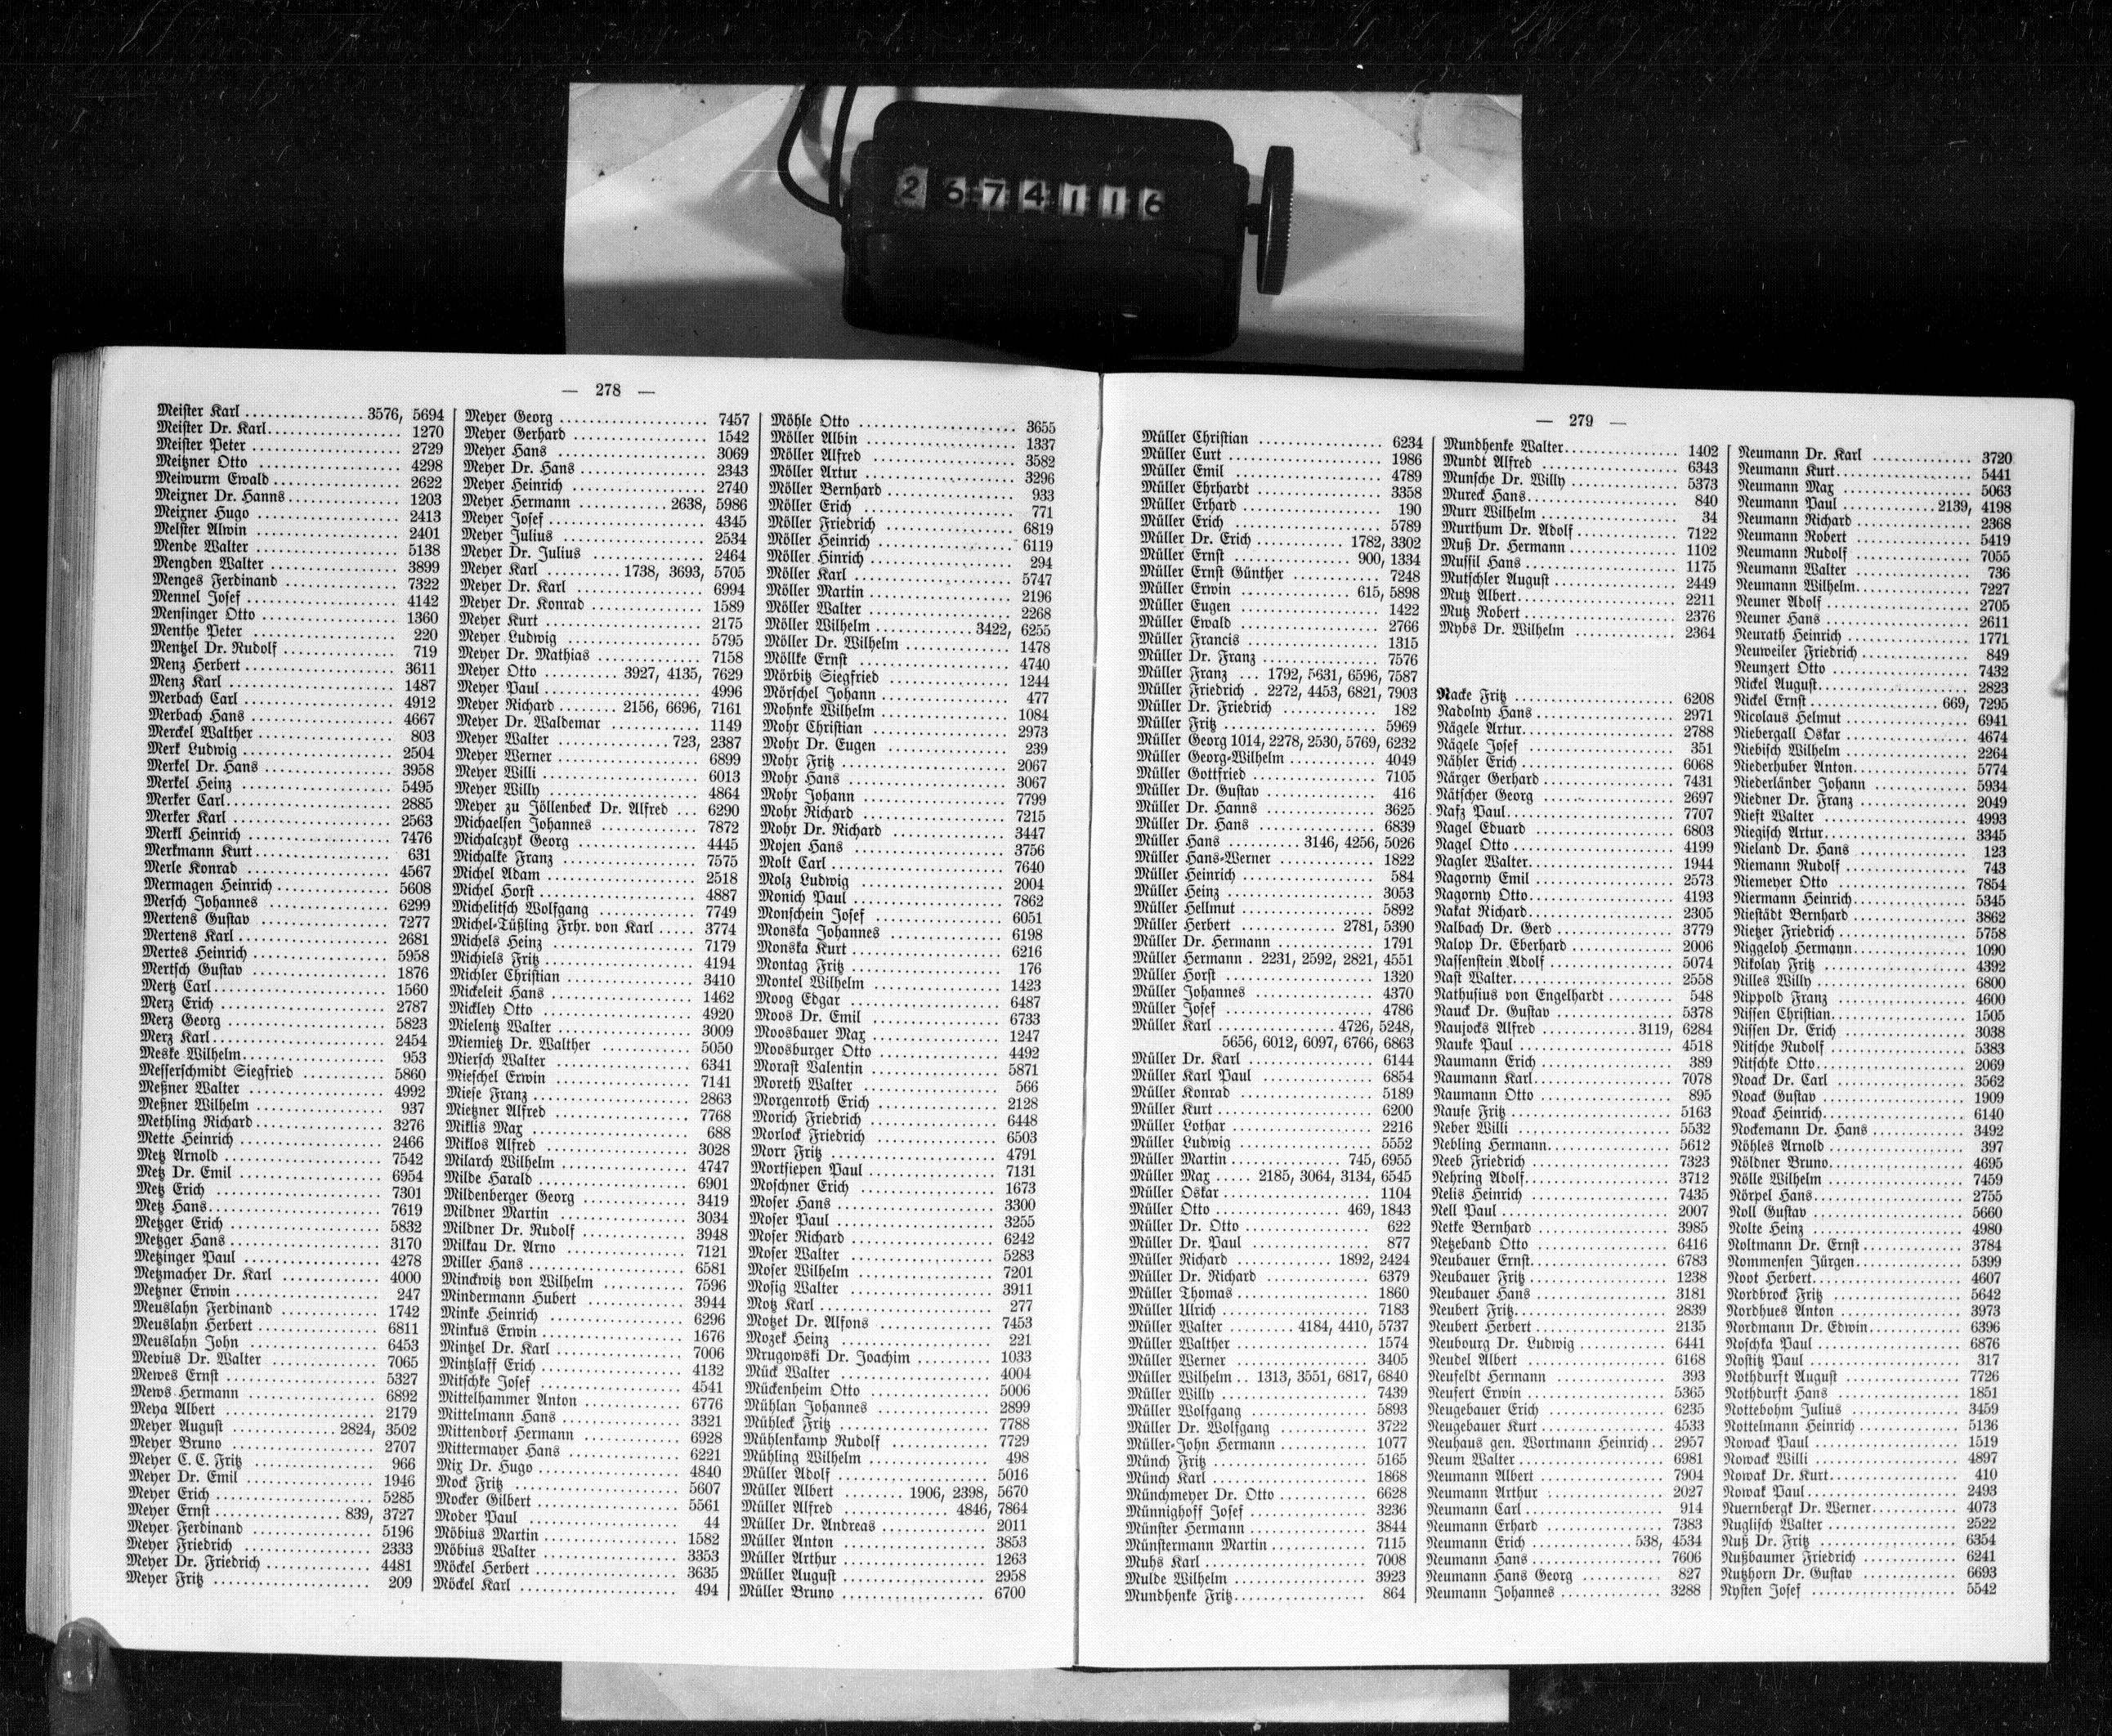 2674116
— 278 —
Meister Karl ................ 3576, 5694
Meister Dr. Karl ................ 1270
Meister Peter ................ 2729
Meitzner Otto ................ 4298
Meiwurm Ewald ................ 2622
Meixner Dr. Hanns ................ 1203
Meixner Hugo ................ 2413
Melster Alwin ................ 2401
Mende Walter ................ 5138
Mengden Walter ................ 3899
Menges Ferdinand ................ 7322
Mennel Josef ................ 4142
Mensinger Otto ................ 1360
Menthe Peter ................ 220
Mentzel Dr. Rudolf ................ 719
Menz Herbert ................ 3611
Menz Karl ................ 1487
Merbach Carl ................ 4912
Merbach Hans ................ 4667
Merckel Walther ................ 803
Merk Ludwig ................ 2504
Merkel Dr. Hans ................ 3958
Merkel Heinz ................ 5495
Merker Carl ................ 2885
Merker Karl ................ 2563
Merkl Heinrich ................ 7476
Merkmann Kurt ................ 631
Merle Konrad ................ 4567
Mermagen Heinrich ................ 5608
Mersch Johannes ................ 6299
Mertens Gustav ................ 7277
Mertens Karl ................ 2681
Mertes Heinrich ................ 5958
Mertsch Gustav ................ 1876
Mertz Carl ................ 1560
Merz Erich ................ 2787
Merz Georg ................ 5823
Merz Karl ................ 2454
Meske Wilhelm ................ 953
Messerschmidt Siegfried ................ 5860
Meßner Walter ................ 4992
Meßner Wilhelm ................ 937
Methling Richard ................ 3276
Mette Heinrich ................ 2466
Metz Arnold ................ 7542
Metz Dr. Emil ................ 6954
Metz Erich ................ 7301
Metz Hans ................ 7619
Metzger Erich ................ 5832
Metzger Hans ................ 3170
Metzinger Paul ................ 4278
Metzmacher Dr. Karl ................ 4000
Metzner Erwin ................ 247
Meuslahn Ferdinand ................ 1742
Meuslahn Herbert ................ 6811
Meuslahn John ................ 6453
Mevius Dr. Walter ................ 7065
Mewes Ernst ................ 5327
Mews Hermann ................ 6892
Meya Albert ................ 2179
Meyer August ................ 2824, 3502
Meyer Bruno ................ 2707
Meyer C. C. Fritz ................ 966
Meyer Dr. Emil ................ 1946
Meyer Erich ................ 5285
Meyer Ernst ................ 839, 3727
Meyer Ferdinand ................ 5196
Meyer Friedrich ................ 2333
Meyer Dr. Friedrich ................ 4481
Meyer Fritz ................ 209
Meyer Georg ................ 7457
Meyer Gerhard ................ 1542
Meyer Hans ................ 3069
Meyer Dr. Hans ................ 2343
Meyer Heinrich ................ 2740
Meyer Hermann ................ 2638, 5986
Meyer Josef ................ 4345
Meyer Julius ................ 2534
Meyer Dr. Julius ................ 2464
Meyer Karl ................ 1738, 3693, 5705
Meyer Dr. Karl ................ 6994
Meyer Dr. Konrad ................ 1589
Meyer Kurt ................ 2175
Meyer Ludwig ................ 5795
Meyer Dr. Mathias ................ 7158
Meyer Otto ................ 3927, 4135, 7629
Meyer Paul ................ 4996
Meyer Richard ................ 2156, 6696, 7161
Meyer Dr. Waldemar ................ 1149
Meyer Walter ................ 723, 2387
Meyer Werner ................ 6899
Meyer Willi ................ 6013
Meyer Willy ................ 4864
Meyer zu Jöllenbeck Dr. Alfred ... 6290
Michaelsen Johannes ................ 7872
Michalczyk Georg ................ 4445
Michalke Franz ................ 7575
Michel Adam ................ 2518
Michel Horst ................ 4887
Michelitsch Wolfgang ................ 7749
Michel-Tüßling Frhr. von Karl ..... 3774
Michels Heinz ................ 7179
Michiels Fritz ................ 4194
Michler Christian ................ 3410
Mickeleit Hans ................ 1462
Mickley Otto ................ 4920
Mielentz Walter ................ 3009
Miemietz Dr. Walther ................ 5050
Miersch Walter ................ 6341
Mieschel Erwin ................ 7141
Miese Franz ................ 2863
Mietzner Alfred ................ 7768
Miklis Max ................ 688
Miklos Alfred ................ 3028
Milarch Wilhelm ................ 4747
Milde Harald ................ 6901
Mildenberger Georg ................ 3419
Mildner Martin ................ 3034
Mildner Dr. Rudolf ................ 3948
Milkau Dr. Arno ................ 7121
Miller Hans ................ 6581
Minckwitz von Wilhelm ................ 7596
Mindermann Hubert ................ 3944
Minke Heinrich ................ 6296
Minkus Erwin ................ 1676
Mintzel Dr. Karl ................ 7006
Mintzlaff Erich ................ 4132
Mitschke Josef ................ 4541
Mittelhammer Anton ................ 6776
Mittelmann Hans ................ 3321
Mittendorf Hermann ................ 6928
Mittermayer Hans ................ 6221
Mix Dr. Hugo ................ 4840
Mock Fritz ................ 5607
Mocker Gilbert ................ 5561
Moder Paul ................ 44
Möbius Martin ................ 1582
Möbius Walter ................ 3353
Möckel Herbert ................ 3635
Möckel Karl ................ 494
Möhle Otto ................ 3655
Möller Albin ................ 1337
Möller Alfred ................ 3582
Möller Artur ................ 3296
Möller Bernhard ................ 933
Möller Erich ................ 771
Möller Friedrich ................ 6819
Möller Heinrich ................ 6119
Möller Hinrich ................ 294
Möller Karl ................ 5747
Möller Martin ................ 2196
Möller Walter ................ 2268
Möller Wilhelm ................ 3422, 6255
Möller Dr. Wilhelm ................ 1478
Möllke Ernst ................ 4740
Mörbitz Siegfried ................ 1244
Mörschel Johann ................ 477
Mohnke Wilhelm ................ 1084
Mohr Christian ................ 2973
Mohr Dr. Eugen ................ 239
Mohr Fritz ................ 2067
Mohr Hans ................ 3067
Mohr Johann ................ 7799
Mohr Richard ................ 7215
Mohr Dr. Richard ................ 3447
Mojen Hans ................ 3756
Molt Carl ................ 7640
Molz Ludwig ................ 2004
Monich Paul ................ 7862
Monschein Josef ................ 6051
Monska Johannes ................ 6198
Monska Kurt ................ 6216
Montag Fritz ................ 176
Montel Wilhelm ................ 1423
Moog Edgar ................ 6487
Moos Dr. Emil ................ 6733
Moosbauer Max ................ 1247
Moosburger Otto ................ 4492
Morast Valentin ................ 5871
Moreth Walter ................ 566
Morgenroth Erich ................ 2128
Morich Friedrich ................ 6448
Morlock Friedrich ................ 6503
Morr Fritz ................ 4791
Mortsiepen Paul ................ 7131
Moschner Erich ................ 1673
Moser Hans ................ 3300
Moser Paul ................ 3255
Moser Richard ................ 6242
Moser Walter ................ 5283
Moser Wilhelm ................ 7201
Mosig Walter ................ 3911
Motz Karl ................ 277
Motzet Dr. Alfons ................ 7453
Mozek Heinz ................ 221
Mrugowski Dr. Joachim ................ 1033
Mück Walter ................ 4004
Mückenheim Otto ................ 5006
Mühlan Johannes ................ 2899
Mühleck Fritz ................ 7788
Mühlenkamp Rudolf ................ 7729
Mühling Wilhelm ................ 498
Müller Adolf ................ 5016
Müller Albert ................ 1906, 2398, 5670
Müller Alfred ................ 4846, 7864
Müller Dr. Andreas ................ 2011
Müller Anton ................ 3853
Müller Arthur ................ 1263
Müller August ................ 2958
Müller Bruno ................ 6700
— 279 —
Müller Christian ................ 6234
Müller Curt ................ 1986
Müller Emil ................ 4789
Müller Ehrhardt ................ 3358
Müller Erhard ................ 190
Müller Erich ................ 5789
Müller Dr. Erich ................ 1782, 3302
Müller Ernst ................ 900, 1334
Müller Ernst Günther ................ 7248
Müller Erwin ................ 615, 5898
Müller Eugen ................ 1422
Müller Ewald ................ 2766
Müller Francis ................ 1315
Müller Dr. Franz ................ 7576
Müller Franz ... 1792, 5631, 6596, 7587
Müller Friedrich . 2272, 4453, 6821, 7903
Müller Dr. Friedrich ................ 182
Müller Fritz ................ 5969
Müller Georg 1014, 2278, 2530, 5769, 6232
Müller Georg-Wilhelm ................ 4049
Müller Gottfried ................ 7105
Müller Dr. Gustav ................ 416
Müller Dr. Hanns ................ 3625
Müller Dr. Hans ................ 6839
Müller Hans ................ 3146, 4256, 5026
Müller Hans-Werner ................ 1822
Müller Heinrich ................ 584
Müller Heinz ................ 3053
Müller Hellmut ................ 5892
Müller Herbert ................ 2781, 5390
Müller Dr. Hermann ................ 1791
Müller Hermann . 2231, 2592, 2821, 4551
Müller Horst ................ 1320
Müller Johannes ................ 4370
Müller Josef ................ 4786
Müller Karl ................ 4726, 5248,
5656, 6012, 6097, 6766, 6863
Müller Dr. Karl ................ 6144
Müller Karl Paul ................ 6854
Müller Konrad ................ 5189
Müller Kurt ................ 6200
Müller Lothar ................ 2216
Müller Ludwig ................ 5552
Müller Martin ................ 745, 6955
Müller Max ..... 2185, 3064, 3134, 6545
Müller Oskar ................ 1104
Müller Otto ................ 469, 1843
Müller Dr. Otto ................ 622
Müller Dr. Paul ................ 877
Müller Richard ................ 1892, 2424
Müller Dr. Richard ................ 6379
Müller Thomas ................ 1860
Müller Ulrich ................ 7183
Müller Walter ................ 4184, 4410, 5737
Müller Walther ................ 1574
Müller Werner ................ 3405
Müller Wilhelm .. 1313, 3551, 6817, 6840
Müller Willy ................ 7439
Müller Wolfgang ................ 5893
Müller Dr. Wolfgang ................ 3722
Müller-John Hermann ................ 1077
Münch Fritz ................ 5165
Münch Karl ................ 1868
Münchmeyer Dr. Otto ................ 6628
Münnighoff Josef ................ 3236
Münster Hermann ................ 3844
Münstermann Martin ................ 7115
Muhs Karl ................ 7008
Mulde Wilhelm ................ 3923
Mundhenke Fritz ................ 864
Mundhenke Walter ................ 1402
Mundt Alfred ................ 6343
Munsche Dr. Willy ................ 5373
Mureck Hans ................ 840
Murr Wilhelm ................ 34
Murthum Dr. Adolf ................ 7122
Muß Dr. Hermann ................ 1102
Mussil Hans ................ 1175
Mutschler August ................ 2449
Mutz Albert ................ 2211
Mutz Robert ................ 2376
Mybs Dr. Wilhelm ................ 2364
Nacke Fritz ................ 6208
Nadolny Hans ................ 2971
Nägele Artur ................ 2788
Nägele Josef ................ 351
Nähler Erich ................ 6068
Närger Gerhard ................ 7431
Nätscher Georg ................ 2697
Nafz Paul ................ 7707
Nagel Eduard ................ 6803
Nagel Otto ................ 4199
Nagler Walter ................ 1944
Nagorny Emil ................ 2573
Nagorny Otto ................ 4193
Nakat Richard ................ 2305
Nalbach Dr. Gerd ................ 3779
Nalop Dr. Eberhard ................ 2006
Nassenstein Adolf ................ 5074
Nast Walter ................ 2558
Nathusius von Engelhardt ................ 548
Nauck Dr. Gustav ................ 5378
Naujocks Alfred ................ 3119, 6284
Nauke Paul ................ 4518
Naumann Erich ................ 389
Naumann Karl ................ 7078
Naumann Otto ................ 895
Nause Fritz ................ 5163
Neber Willi ................ 5532
Nebling Hermann ................ 5612
Neeb Friedrich ................ 7323
Nehring Adolf ................ 3712
Nelis Heinrich ................ 7435
Nell Paul ................ 2007
Netke Bernhard ................ 3985
Netzeband Otto ................ 6416
Neubauer Ernst ................ 6783
Neubauer Fritz ................ 1238
Neubauer Hans ................ 3181
Neubert Fritz ................ 2839
Neubert Herbert ................ 2135
Neubourg Dr. Ludwig ................ 6441
Neudel Albert ................ 6168
Neufeldt Hermann ................ 393
Neufert Erwin ................ 5365
Neugebauer Erich ................ 6235
Neugebauer Kurt ................ 4533
Neuhaus gen. Wortmann Heinrich .. 2957
Neum Walter ................ 6981
Neumann Albert ................ 7904
Neumann Arthur ................ 2027
Neumann Carl ................ 914
Neumann Erhard ................ 7383
Neumann Erich ................ 538, 4534
Neumann Hans ................ 7606
Neumann Hans Georg ................ 827
Neumann Johannes ................ 3288
Neumann Dr. Karl ................ 3720
Neumann Kurt ................ 5441
Neumann Max ................ 5063
Neumann Paul ................ 2139, 4198
Neumann Richard ................ 2368
Neumann Robert ................ 5419
Neumann Rudolf ................ 7055
Neumann Walter ................ 736
Neumann Wilhelm ................ 7227
Neuner Adolf ................ 2705
Neuner Hans ................ 2611
Neurath Heinrich ................ 1771
Neuweiler Friedrich ................ 849
Neunzert Otto ................ 7432
Nickel August ................ 2823
Nickel Ernst ................ 669, 7295
Nicolaus Helmut ................ 6941
Niebergall Oskar ................ 4674
Niebisch Wilhelm ................ 2264
Niederhuber Anton ................ 5774
Niederländer Johann ................ 5934
Niedner Dr. Franz ................ 2049
Nieft Walter ................ 4993
Niegisch Artur ................ 3345
Nieland Dr. Hans ................ 123
Niemann Rudolf ................ 743
Niemeyer Otto ................ 7854
Niermann Heinrich ................ 5345
Niestädt Bernhard ................ 3862
Nietzer Friedrich ................ 5758
Niggeloh Hermann ................ 1090
Nikolay Fritz ................ 4392
Nilles Willy ................ 6800
Nippold Franz ................ 4600
Nissen Christian ................ 1505
Nissen Dr. Erich ................ 3038
Nitsche Rudolf ................ 5383
Nitschke Otto ................ 2069
Noack Dr. Carl ................ 3562
Noack Gustav ................ 1909
Noack Heinrich ................ 6140
Nockemann Dr. Hans ................ 3492
Nöhles Arnold ................ 397
Nöldner Bruno ................ 4695
Nölle Wilhelm ................ 7459
Nörpel Hans ................ 2755
Noll Gustav ................ 5660
Nolte Heinz ................ 4980
Noltmann Dr. Ernst ................ 3784
Nommensen Jürgen ................ 5399
Noot Herbert ................ 4607
Nordbrock Fritz ................ 5642
Nordhues Anton ................ 3973
Nordmann Dr. Edwin ................ 6396
Noschka Paul ................ 6876
Nostitz Paul ................ 317
Nothdurft August ................ 7726
Nothdurft Hans ................ 1851
Nottebohm Julius ................ 3459
Nottelmann Heinrich ................ 5136
Nowack Paul ................ 1519
Nowack Willi ................ 4897
Nowak Dr. Kurt ................ 410
Nowak Paul ................ 2493
Nuernbergk Dr. Werner ................ 4073
Nuglisch Walter ................ 2522
Nuß Dr. Fritz ................ 6354
Nußbaumer Friedrich ................ 6241
Nutzhorn Dr. Gustav ................ 6693
Nysten Josef ................ 5542